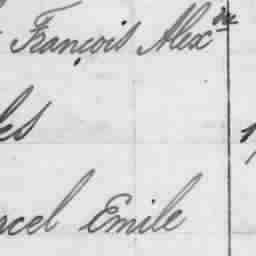 François Alex dre
les
rcel Emile